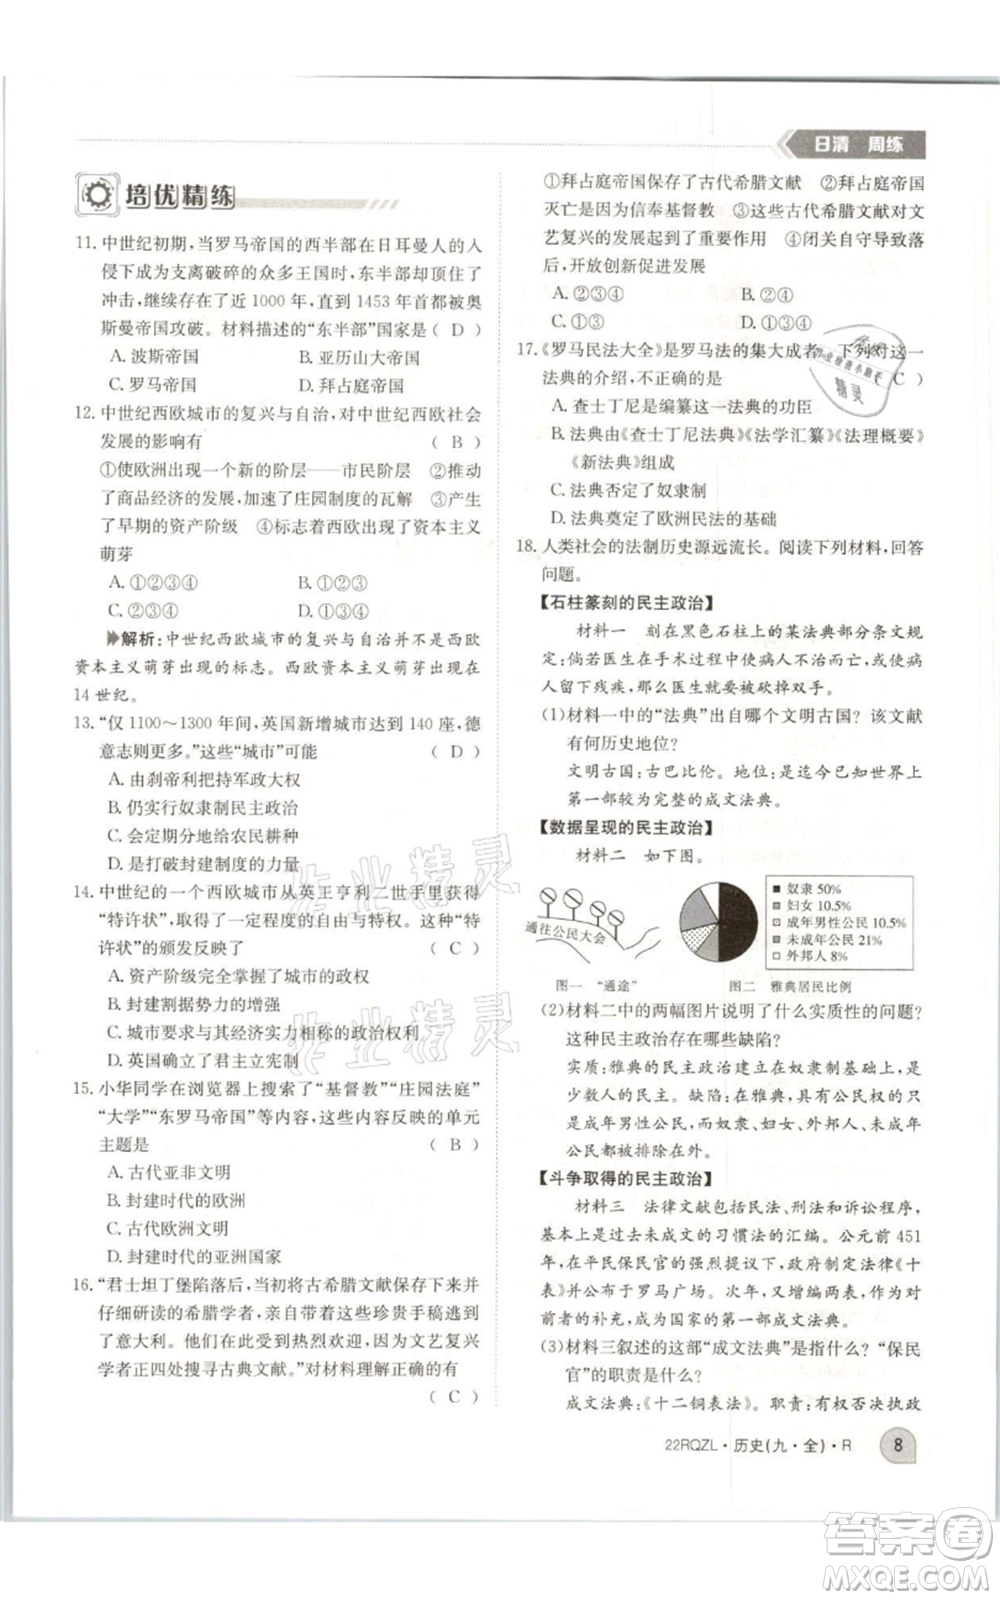 日清 周练
培优精练
11. 中世纪初期，当罗马帝国的西半部在日耳曼人的入
侵下成为支离破碎的众多王国时，东半部却顶住了
冲击，继续存在了近 1000 年，直到 1453 年首都被奥
斯曼帝国攻破。材料描述的“东半部”国家是（ D ）
A. 波斯帝国 B. 亚历山大帝国
C. 罗马帝国 D. 拜占庭帝国
12. 中世纪西欧城市的复兴与自治，对中世纪西欧社会
发展的影响有 （ B ）
①使欧洲出现一个新的阶层——市民阶层 ②推动
了商品经济的发展，加速了庄园制度的瓦解 ③产生
了早期的资产阶级 ④标志着西欧出现了资本主义
萌芽
A. ①②③④ B. ①②③
C. ①②④ D. ①③④
解析：中世纪西欧城市的复兴与自治并不是西欧
资本主义萌芽出现的标志。西欧资本主义萌芽出现在
14 世纪。
13. “仅 1100～1300 年间，英国新增城市达到 140 座，德
意志则更多。”这些“城市”可能 （ D ）
A. 由刹帝利把持军政大权
B. 仍实行奴隶制民主政治
C. 会定期分地给农民耕种
D. 是破坏封建制度的力量
14. 中世纪的一个西欧城市从英王亨利二世手里获得
“特许状”，取得了一定程度的自由与特权。这种“特
许状”的颁发反映了 （ C ）
A. 资产阶级完全掌握了城市的政权
B. 封建割据势力的增强
C. 城市要求与其经济实力相称的政治权利
D. 英国确立了君主立宪制
15. 小华同学在浏览器上搜索了“基督教”“庄园法庭”
“大学”“东罗马帝国”等内容，这些内容反映的单元
主题是 （ B ）
A. 古代亚非文明
B. 封建时代的欧洲
C. 古代欧洲文明
D. 封建时代的亚洲国家
16. “君士坦丁堡陷落后，当初将古希腊文献保存下来并
仔细研读的希腊学者，亲自带着这些珍贵手稿逃到
了意大利。他们在此处受到热烈欢迎，因为文艺复兴
学者正四处搜寻古典文献。”对材料理解正确的有
（ C ）
①拜占庭帝国保存了古代希腊文献 ②拜占庭帝国
灭亡是因为信奉基督教 ③这些古代希腊文献对文
艺复兴的发展起到了重要作用 ④闭关自守导致落
后，开放创新促进发展
A. ②③④ B. ①②③④
C. ①③ D. ①③④
17. 《罗马民法大全》是罗马法的集大成者，下列对这一
法典的介绍，不正确的是 （ C ）
A. 查士丁尼是编纂这一法典的功臣
B. 法典由《查士丁尼法典》《法学汇纂》《法理概要》
《新法典》组成
C. 法典否定了奴隶制
D. 法典奠定了欧洲民法的基础
18. 人类社会的法制历史源远流长。阅读下列材料，回答
问题。
【石柱篆刻的民主政治】
材料一 刻在黑色石柱上的某法典部分条文规
定：倘若医生在手术过程中使病人不治而亡，或使病
人留下残疾，那么医生就要被砍掉双手。
（1）材料一中的“法典”出自哪个文明古国？该文献
有何历史地位？
文明古国：古巴比伦。地位：是迄今已知世界上
第一部较为完整的成文法典。
【数据呈现的民主政治】
材料二 如下图。
通往公民大会
奴隶 50%
妇女 10.5%
成年男性公民 10.5%
未成年公民 21%
外邦人 8%
图一 “通途” 图二 雅典居民比例
（2）材料二中的两幅图片说明了什么实质性的问题？
这种民主政治存在哪些缺陷？
实质：雅典的民主政治是奴隶制民主，是少数人
的民主。缺陷：在雅典，享有公民权利的只
是成年男性公民，妇女、外邦人、奴隶、未成年
公民都被排除在外。
【斗争取得的民主政治】
材料三 法律文献包括民法、刑法和诉讼程序，
基本上是过去未成文的习惯法的汇编。公元前 451
年，在平民保民官的强烈要求下，罗马制定法律《十
表》并公布于罗马广场。次年，又增编两表，作为对
前者的补充，成为国家的第一部成文法典。
（3）材料三叙述的这部“成文法典”是指什么？“保民
官”的职责是什么？
成文法典：《十二铜表法》。职责：有权否决政
22RQZL·历史（九·全）·R 8
作业精灵
作业精灵
精灵
答案卷
MXQE.COM